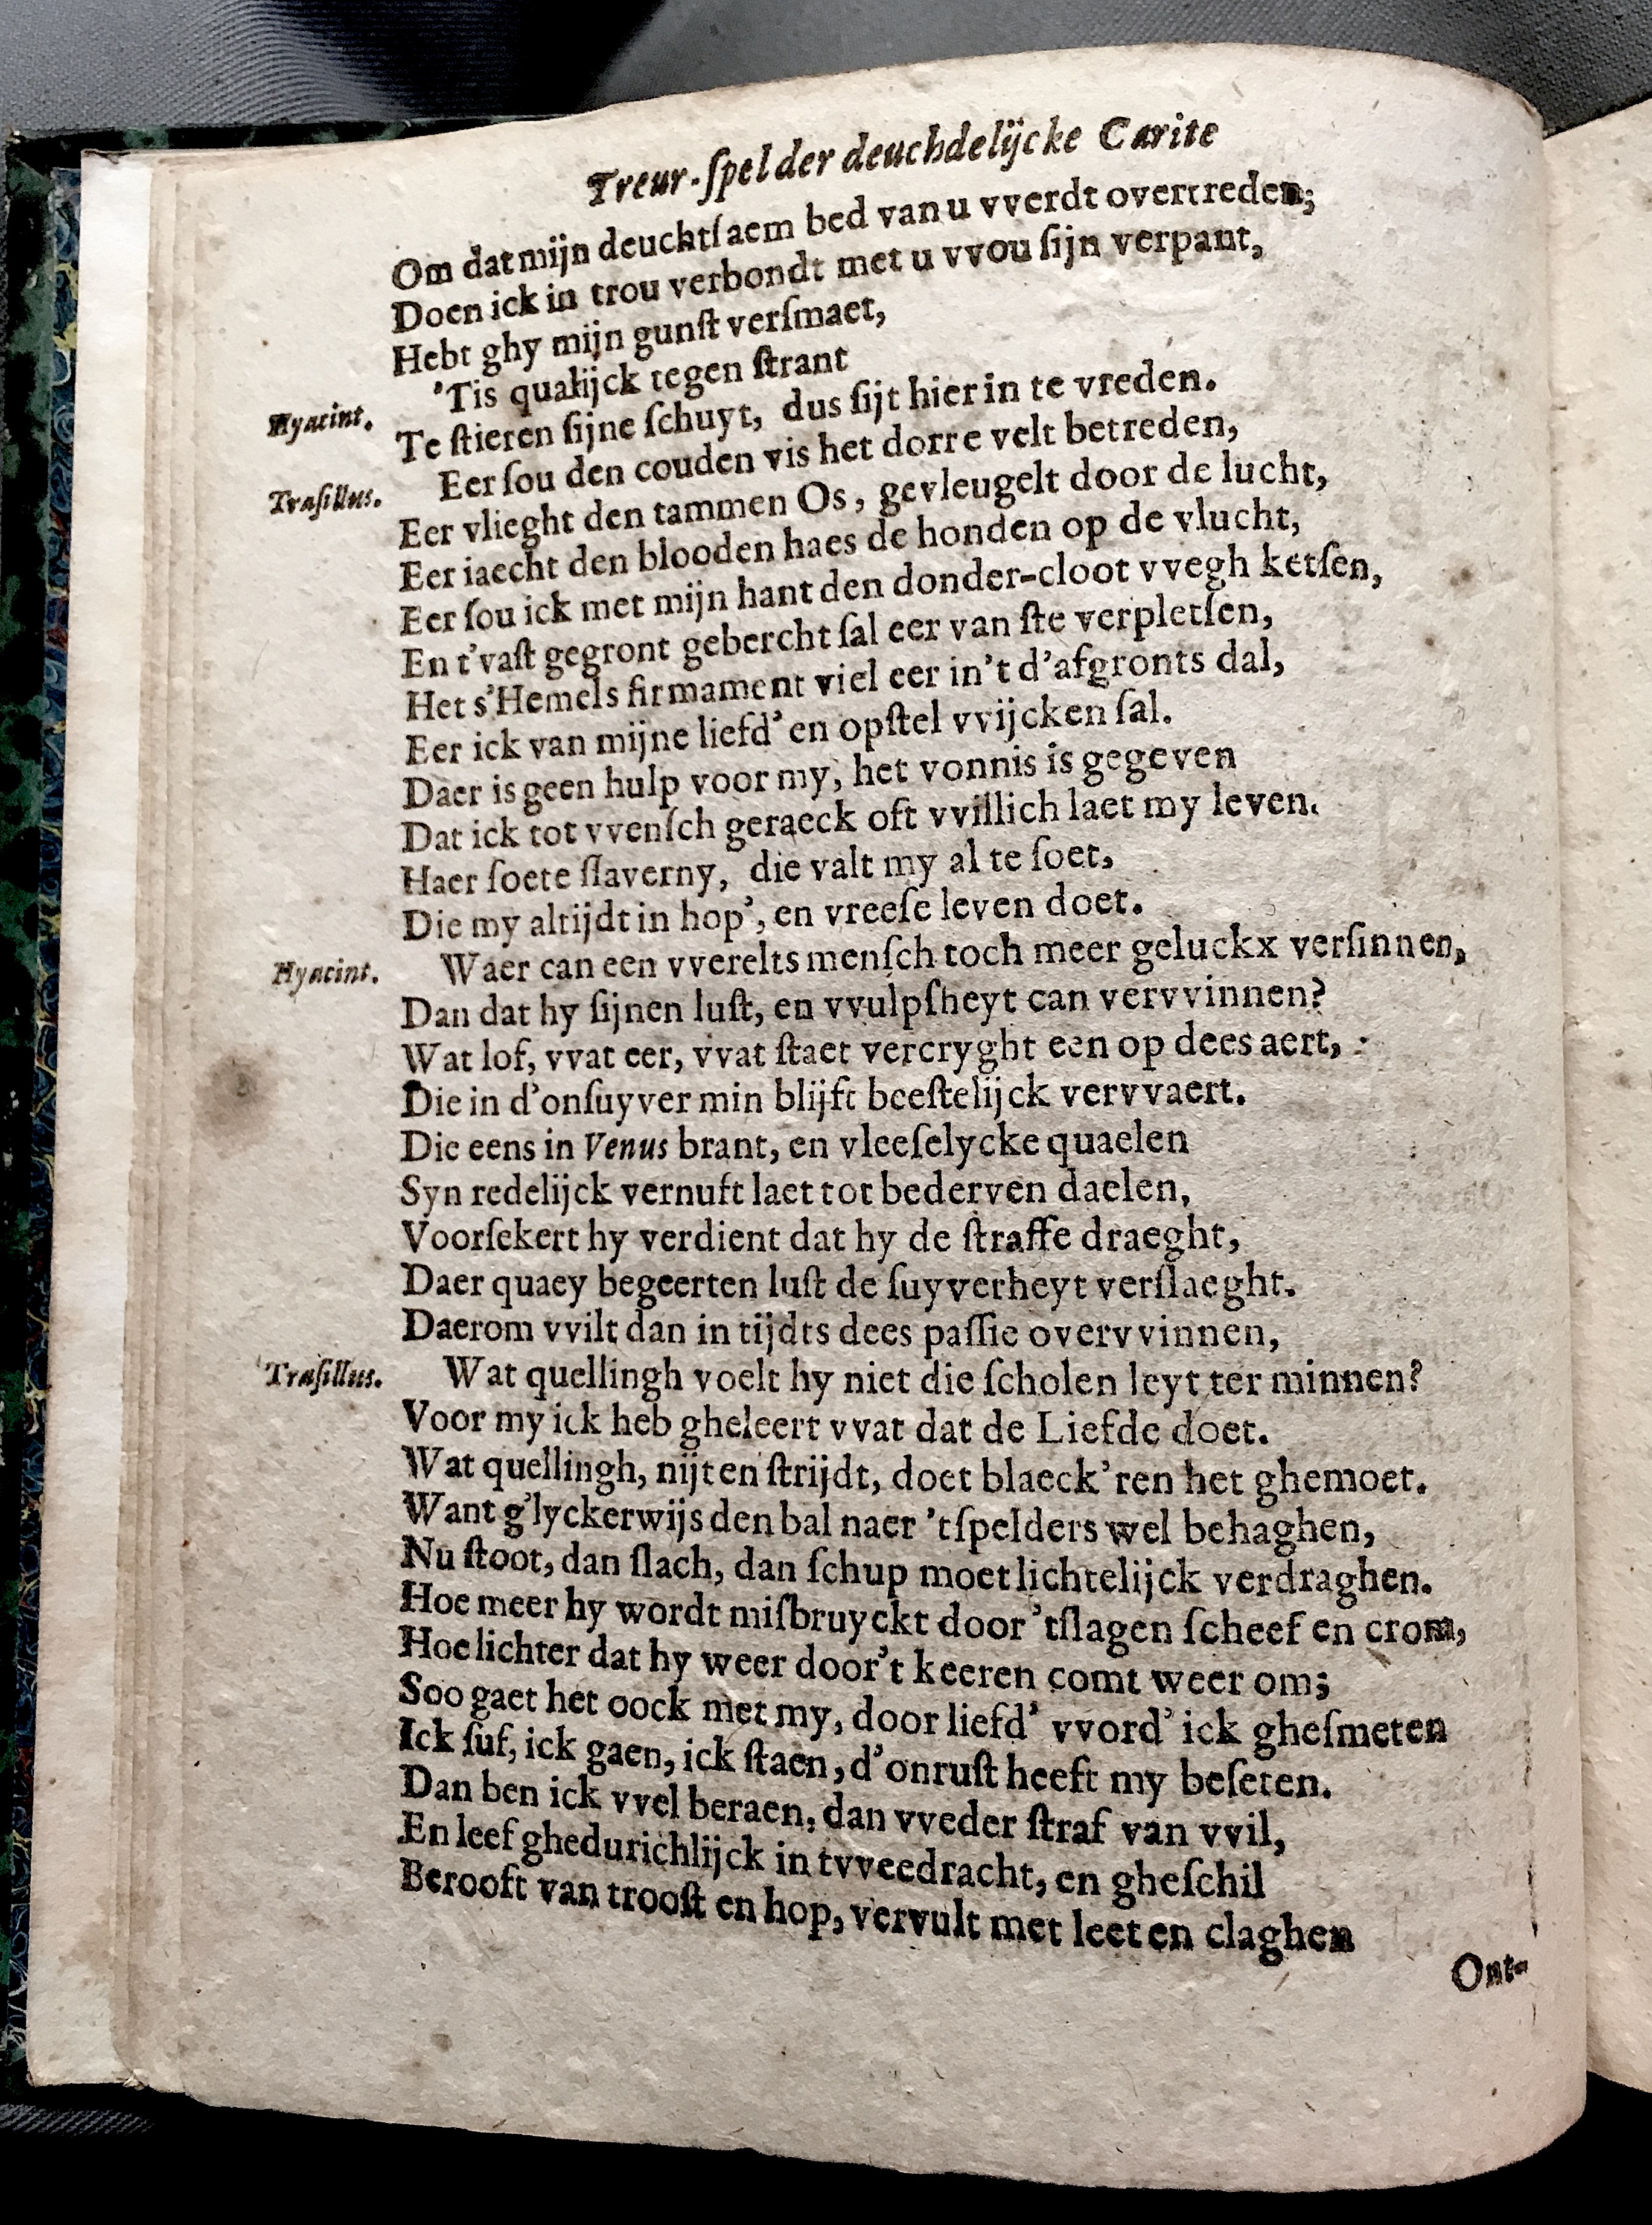 Treur-ſpel der deuchdelijcke Carite
Om dat mijn deuchtſaem bed van u vverdt overtreden;
Doen ick in trou verbondt met u vvou ſijn verpant,
Hebt ghy mijn gunſt verſmaet,
Hyacint. 'Tis qualijck tegen ſtrant
Te ſtieren ſijne ſchuyt, dus ſijt hier in te vreden.
Traſillus. Eer ſou den couden vis het dorre velt betreden,
Eer vlieght den tammen Os, gevleugelt door de lucht,
Eer iaecht den blooden haes de honden op de vlucht,
Eer ſou ick met mijn hant den donder-cloot vvegh ketſen,
En t'vaſt gegront gebercht ſal eer van ſte verpletſen,
Het s'Hemels firmament viel eer in't d'afgronts dal,
Eer ick van mijne liefd' en opſtel vvijcken ſal.
Daer is geen hulp voor my, het vonnis is gegeven
Dat ick tot vvenſch geraeck oft vvillich laet my leven.
Haer ſoete ſlaverny, die valt my al te ſoet,
Die my altijdt in hop', en vreeſe leven doet.
Hyacint. Waer can een vverelts menſch toch meer geluckx verſinnen,
Dan dat hy ſijnen luſt, en vvulpſheyt can vervvinnen?
Wat lof, vvat eer, vvat ſtaet vercryght een op dees aert,
Die in d'onſuyver min blijft beeſtelijck vervvaert.
Die eens in Venus brant, en vleeſelycke quaelen
Syn redelijck vernuft laet tot bederven daelen,
Voorſekert hy verdient dat hy de ſtraffe draeght,
Daer quaey begeerten luſt de ſuyverheyt verſlaeght.
Daerom vvilt dan in tijdts dees paſſie overvvinnen,
Traſillus. Wat quellingh voelt hy niet die ſcholen leyt ter minnen?
Voor my ick heb gheleert vvat dat de Liefde doet.
Wat quellingh, nijt en ſtrijdt, doet blaeck'ren het ghemoet.
Want g'lyckerwijs den bal naer 'tſpelders wel behaghen,
Nu ſtoot, dan ſlach, dan ſchup moet lichtelijck verdraghen.
Hoe meer hy wordt miſbruyckt door 'tſlagen ſcheef en crom,
Hoe lichter dat hy weer door't keeren comt weer om;
Soo gaet het oock met my, door liefd' vvord' ick gheſmeten
Ick ſuf, ick gaen, ick ſtaen, d'onruſt heeft my beſeten.
Dan ben ick vvel beraen, dan vveder ſtraf van vvil,
En leef ghedurichlijck in tvveedracht, en gheſchil
Berooft van trooſt en hop, vervult met leet en claghen
Ont-